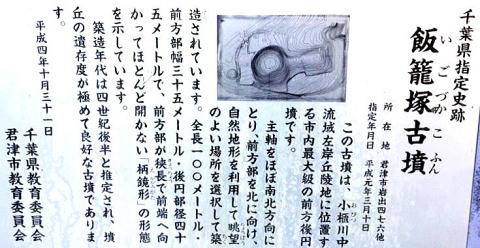 千葉県指定史跡
飯籠塚古墳
いごづかこふん
所在地 君津市岩出四七六他
指定年月日 平成元年三月十日
この古墳は、小櫃川中
おびつ
流域左岸丘陵地に位置す
る市内最大級の前方後円
墳です。
主軸をほぼ南北方向に
とり、前方部を北に向け、
自然地形を利用して眺望
のよい場所を選択して築
造されています。全長一〇〇メートル・
前方部幅三十五メートル・後円部径四十
五メートルで、前方部が狭長で前端へ向
かってほとんど開かない「柄鏡形」の形態
を示しています。
築造年代は四世紀後半と推定され、墳
丘の遺存度が極めて良好な古墳でありま
す。
平成四年十月三十一日
千葉県教育委員会
君津市教育委員会